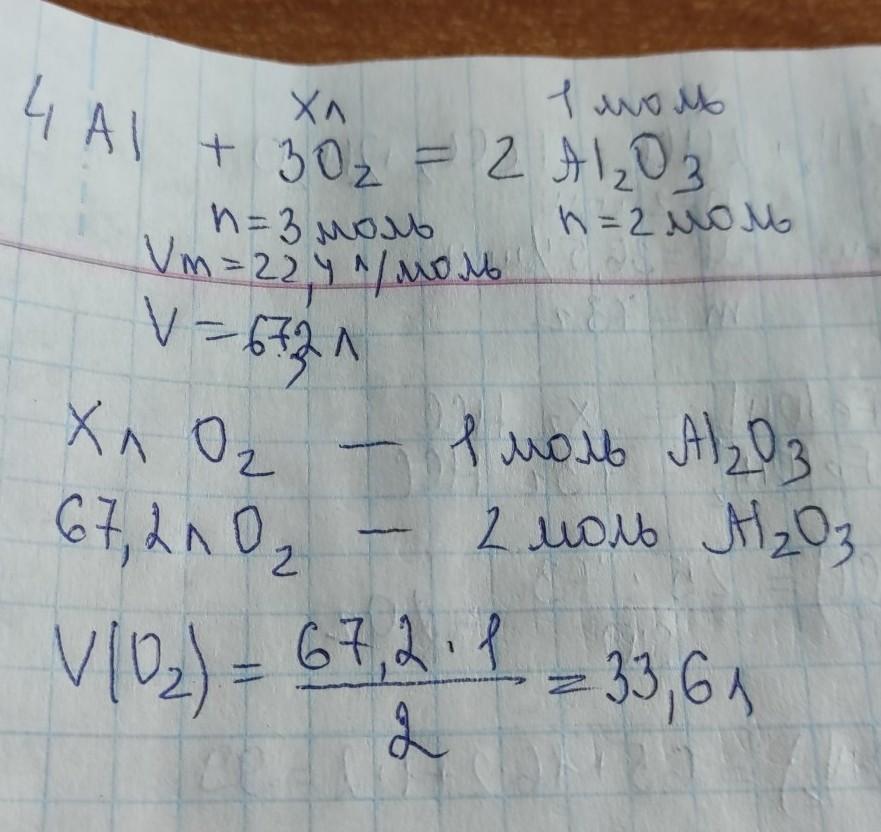 хл 1 моль
4 Al + 3O₂ = 2 Al₂O₃
n=3 моль n=2 моль
Vm=22,4 л/моль
V=67,2 л
Хл O₂ — 1 моль Al₂O₃
67,2л O₂ — 2 моль Al₂O₃
V(O₂) = 67,2·1 / 2 = 33,6л